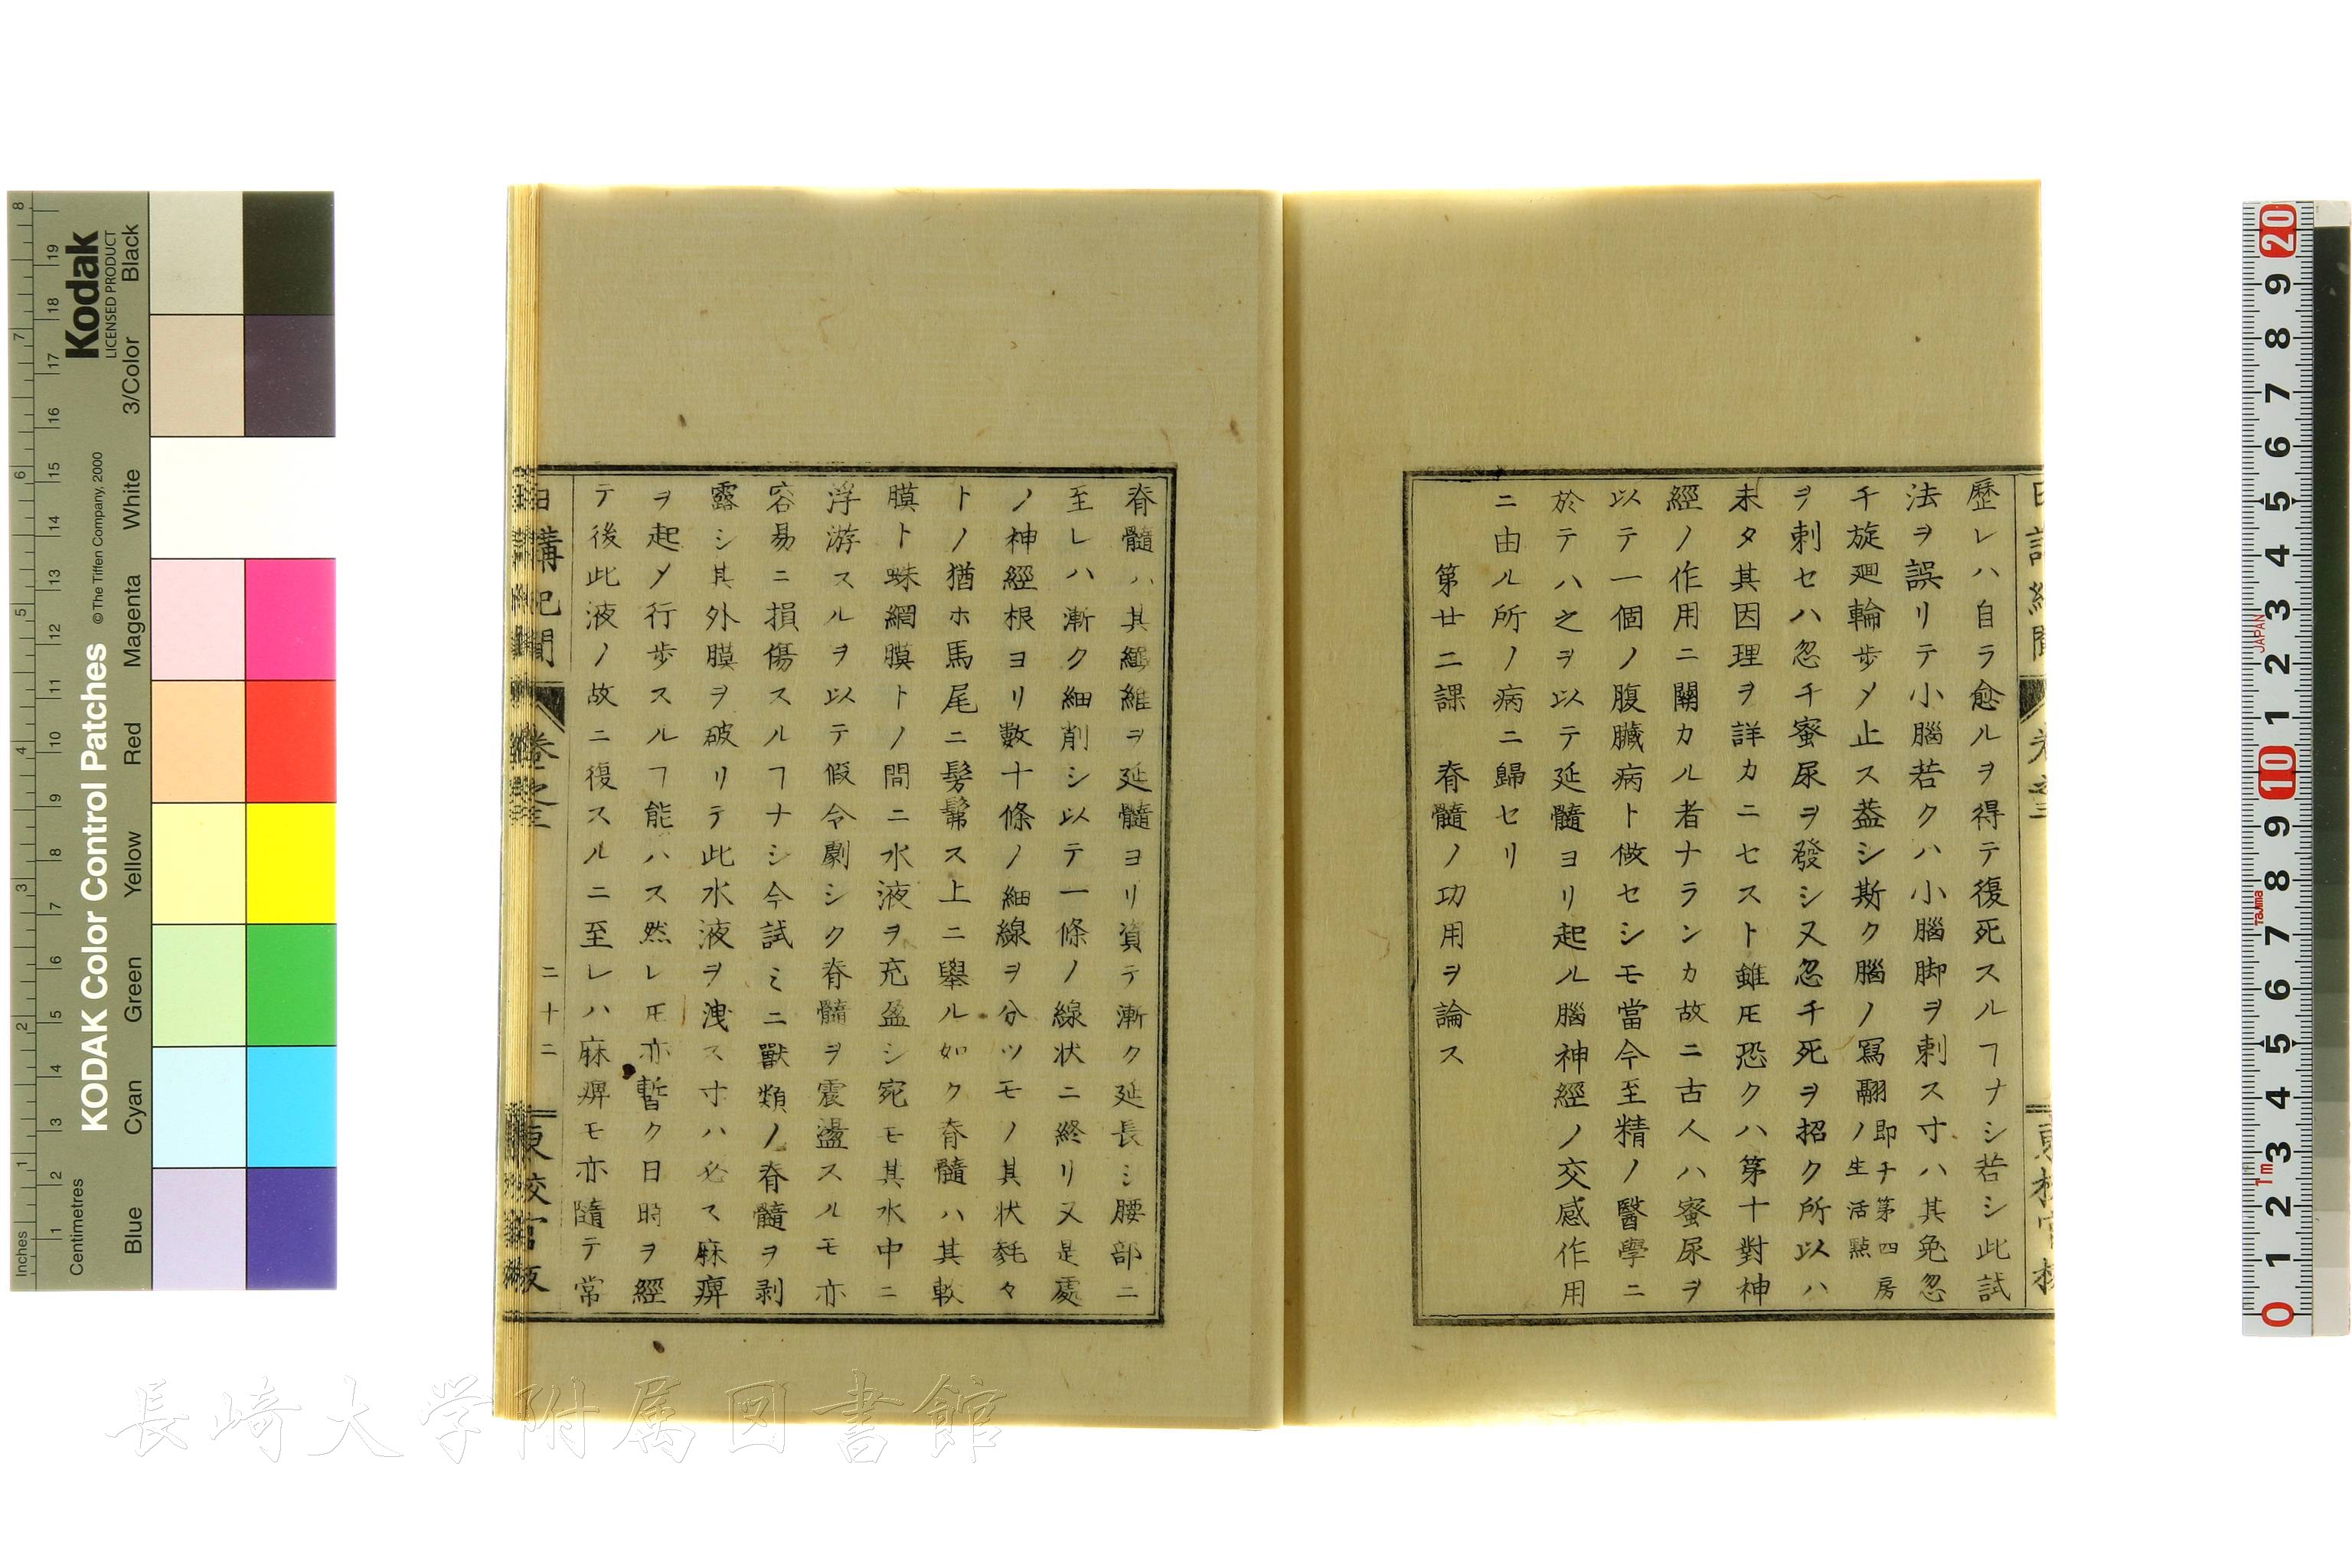 歷レハ自ラ愈ルヲ得テ復死スルヿナシ若シ此試
法ヲ誤リテ小腦若クハ小腦脚ヲ刺ス寸ハ其兔忽
チ旋廻輪歩〆止ス蓋シ斯ク腦ノ冩翮ノ即チ第四房生活點
ヲ刺セハ忽チ蜜尿ヲ發シ又忽チ死ヲ招ク所以ハ
未タ其因理ヲ詳カニセスト雖𪜈恐クハ第十對神
經ノ作用ニ關カル者ナランカ故ニ古人ハ蜜尿ヲ
以テ一個ノ腹臓病ト做セシモ當今至精ノ醫學ニ
於テハ之ヲ以テ延髓ヨリ起ル腦神經ノ交感作用
ニ由ル所ノ病ニ歸セリ
第廿二課 脊髓ノ功用ヲ論ス
脊髓ハ其纖維ヲ延髓ヨリ資テ漸ク延長シ腰部ニ
至レハ漸ク細削シ以テ一條ノ線状ニ終リ又是處
ノ神經根ヨリ數十條ノ細線ヲ分ツモノ其状毿々
トノ猶ホ馬尾ニ髣髴ス上ニ擧ル如ク脊髓ハ其軟
膜ト蛛網膜トノ間ニ水液ヲ充盈シ宛モ其水中ニ
浮游スルヲ以テ假令劇シク脊髓ヲ震盪スルモ亦
容易ニ損傷スルヿナシ今試ミニ獸類ノ脊髓ヲ剥
露シ其外膜ヲ破リテ此水液ヲ洩ス寸ハ必ス麻痺
ヲ起〆行歩スルヿ能ハス然レ𪜈亦暫ク日時ヲ經
テ後此液ノ故ニ復スルニ至レハ麻痺モ亦隨テ常
日講紀聞 卷之三 二十二 東校官版
KODAK Color Control Patches
© The Tiffen Company, 2000
Kodak
LICENSED PRODUCT
Inches 1 2 3 4 5 6 7 8
Centimetres 1 2 3 4 5 6 7 8 9 10 11 12 13 14 15 16 17 18 19
Blue Cyan Green Yellow Red Magenta White 3/Color Black
0 1 2 3 4 5 6 7 8 9 10 1 2 3 4 5 6 7 8 9 20
1m Tajima JAPAN
長崎大学附属図書館